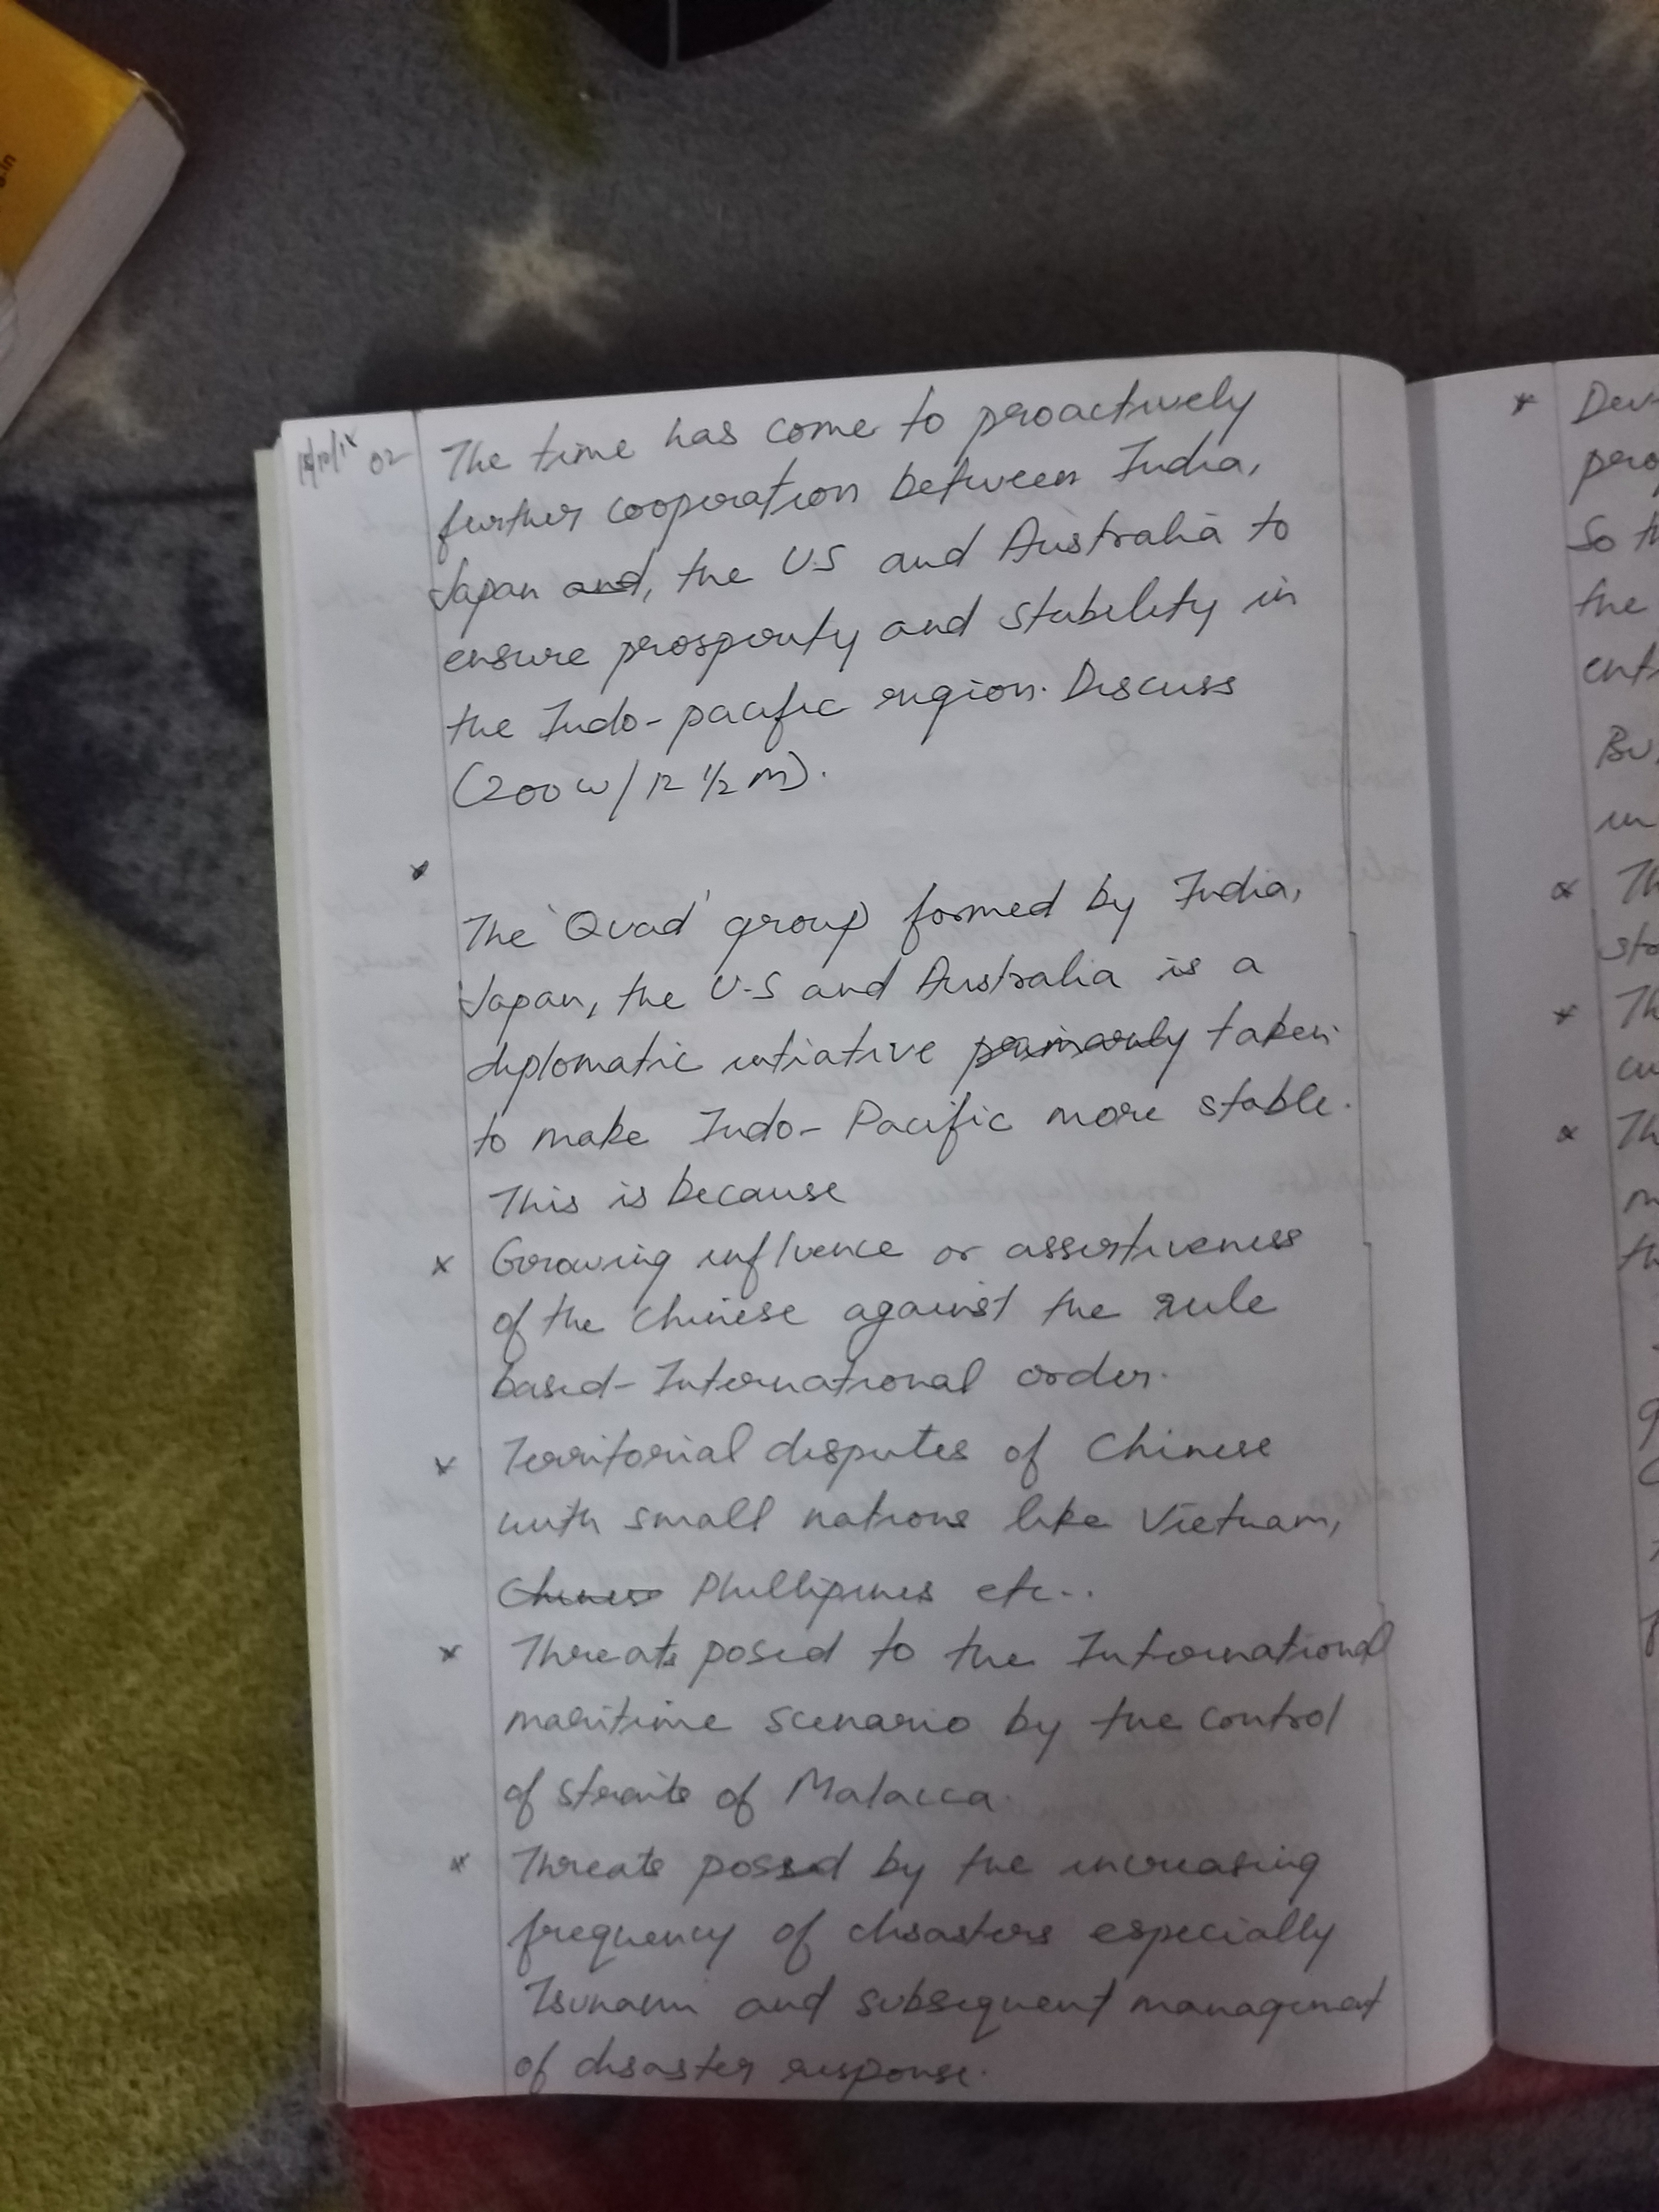 02
The time has come to proactively
further cooperation between India,
Japan and, the US and Australia to
ensure prosperity and stability in
the Indo-pacific region. Discuss
(200w/12 ½ M).
The 'Quad' group formed by India,
Japan, the U.S and Australia is a
diplomatic intiative primarily taken
to make Indo-Pacific more stable.
This is because
x Growing influence or assertiveness
of the Chinese against the rule
based-International order.
x Territorial disputes of Chinese
with small nations like Vietnam,
Chinese Phillipines etc..
x Threats posed to the International
maritime scenario by the control
of straits of Malacca.
x Threats possed by the increasing
frequency of disasters especially
Tsunami and subsequent management
of disaster response.
So th
the
Bu
in
Th
sto
Th
cu
Th
m
th